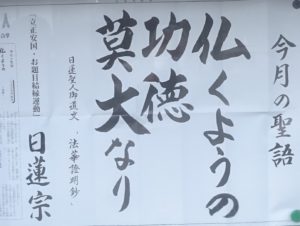 今月の聖語
仏くようの
功徳
莫大なり
日蓮聖人御遺文「法華證明鈔」
「立正安国・お題目結縁運動」
日蓮宗